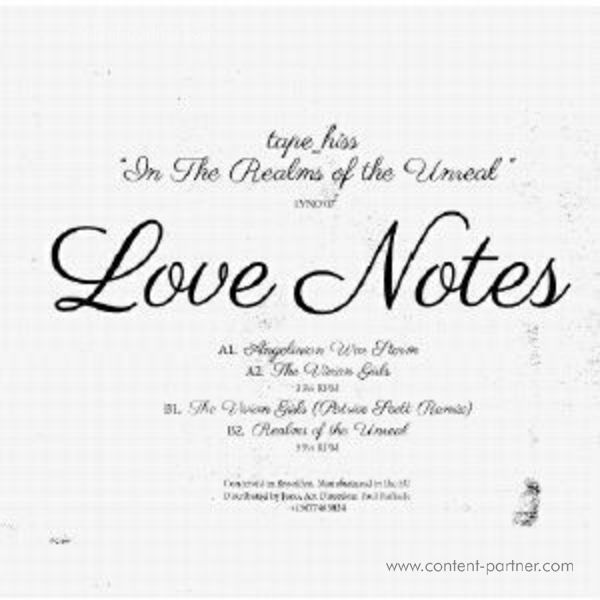 tape_hiss
"In The Realms of the Unreal"
Love Notes
A1. Angelinian War Storm
A2. The Vivian Girls
33⅓ RPM
B1. The Vivian Girls (Patrice Scott Remix)
B2. Realms of the Unreal
33⅓ RPM
Conceived in Brooklyn. Manufactured in the EU
Distributed by Juno. Art Direction:
www.content-partner.com